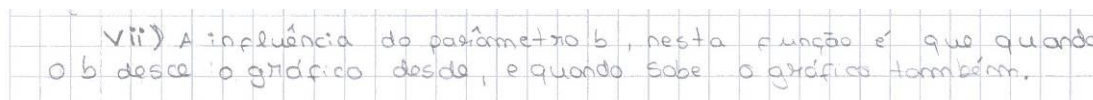 Vii) A influência do parâmetro b, nesta função é que quando
o b desce o gráfico desde, e quando sobe o gráfico também.